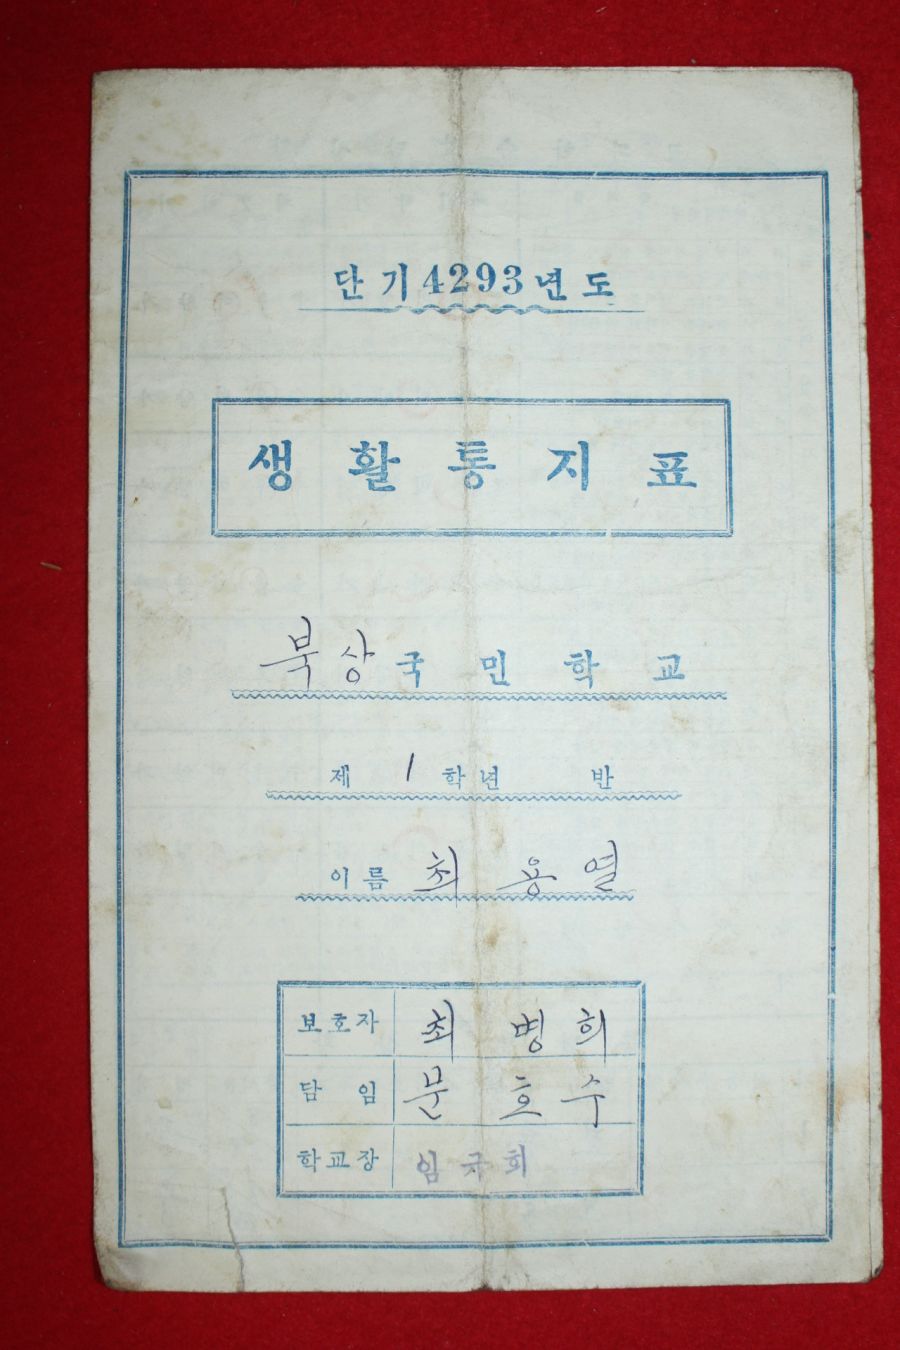 단기4293년도
생활통지표
북상국민학교
제 1 학년 반
이름 최용열
보호자 최병희
담임 문호수
학교장 임국희